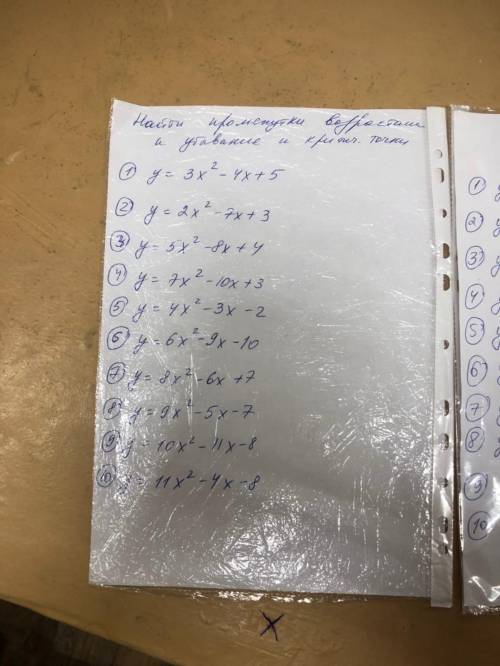 Найти промежутки возрастани
и убывание и критич. точки
① y = 3x² - 4x + 5
② y = 2x² - 7x + 3
③ y = 5x² - 8x + 4
④ y = 7x² - 10x + 3
⑤ y = 4x² - 3x - 2
⑥ y = 6x² - 9x - 10
⑦ y = 8x² - 6x + 7
⑧ y = 9x² - 5x - 7
⑨ y = 10x² - 11x - 8
⑩ y = 11x² - 4x - 8
①
②
③
④
⑤
⑥
⑦
⑧
⑨
⑩
X